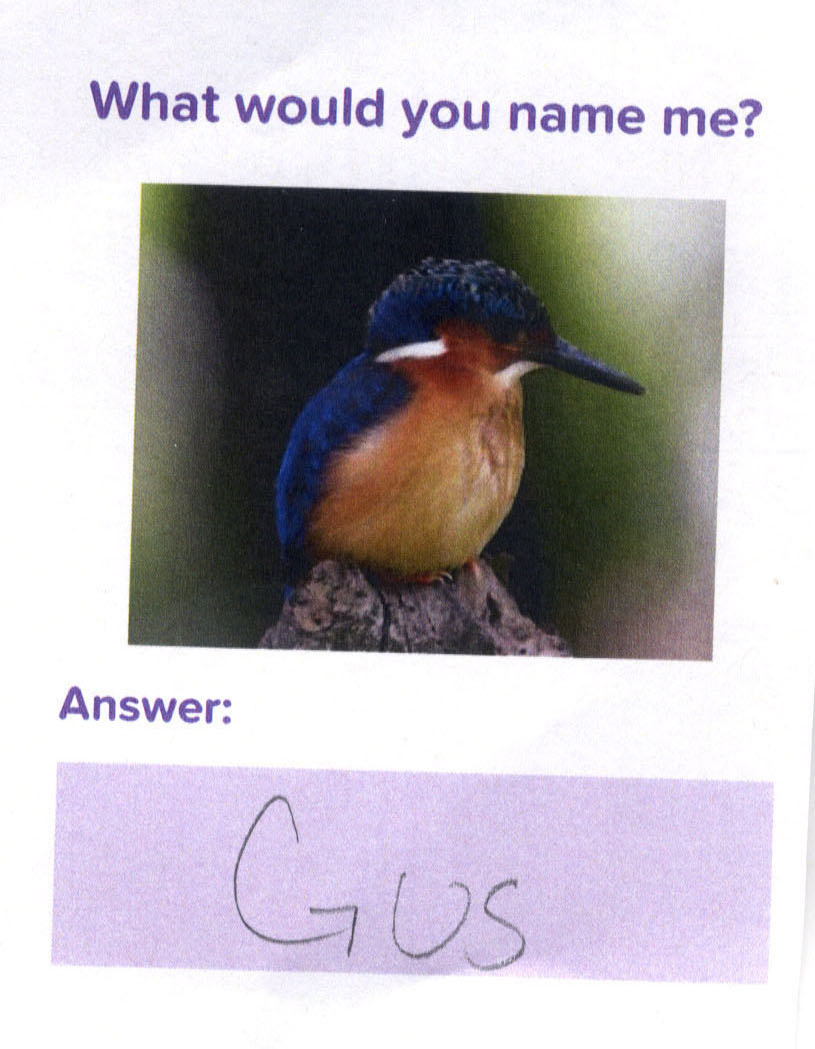 What would you name me?
Answer:
Gus